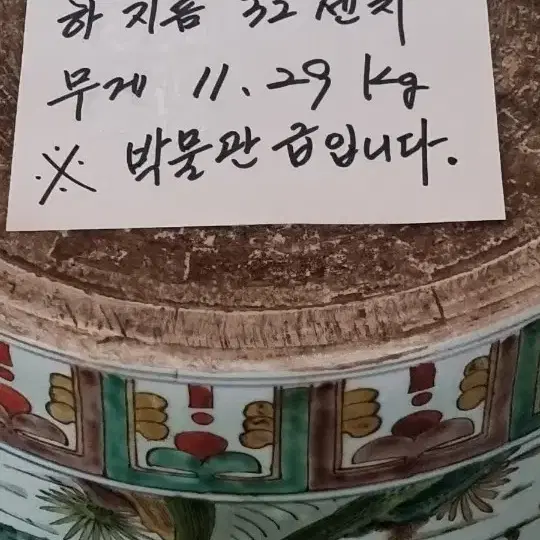 하 지름 32 센치
무게 11.29 kg
※ 박물관 급입니다.